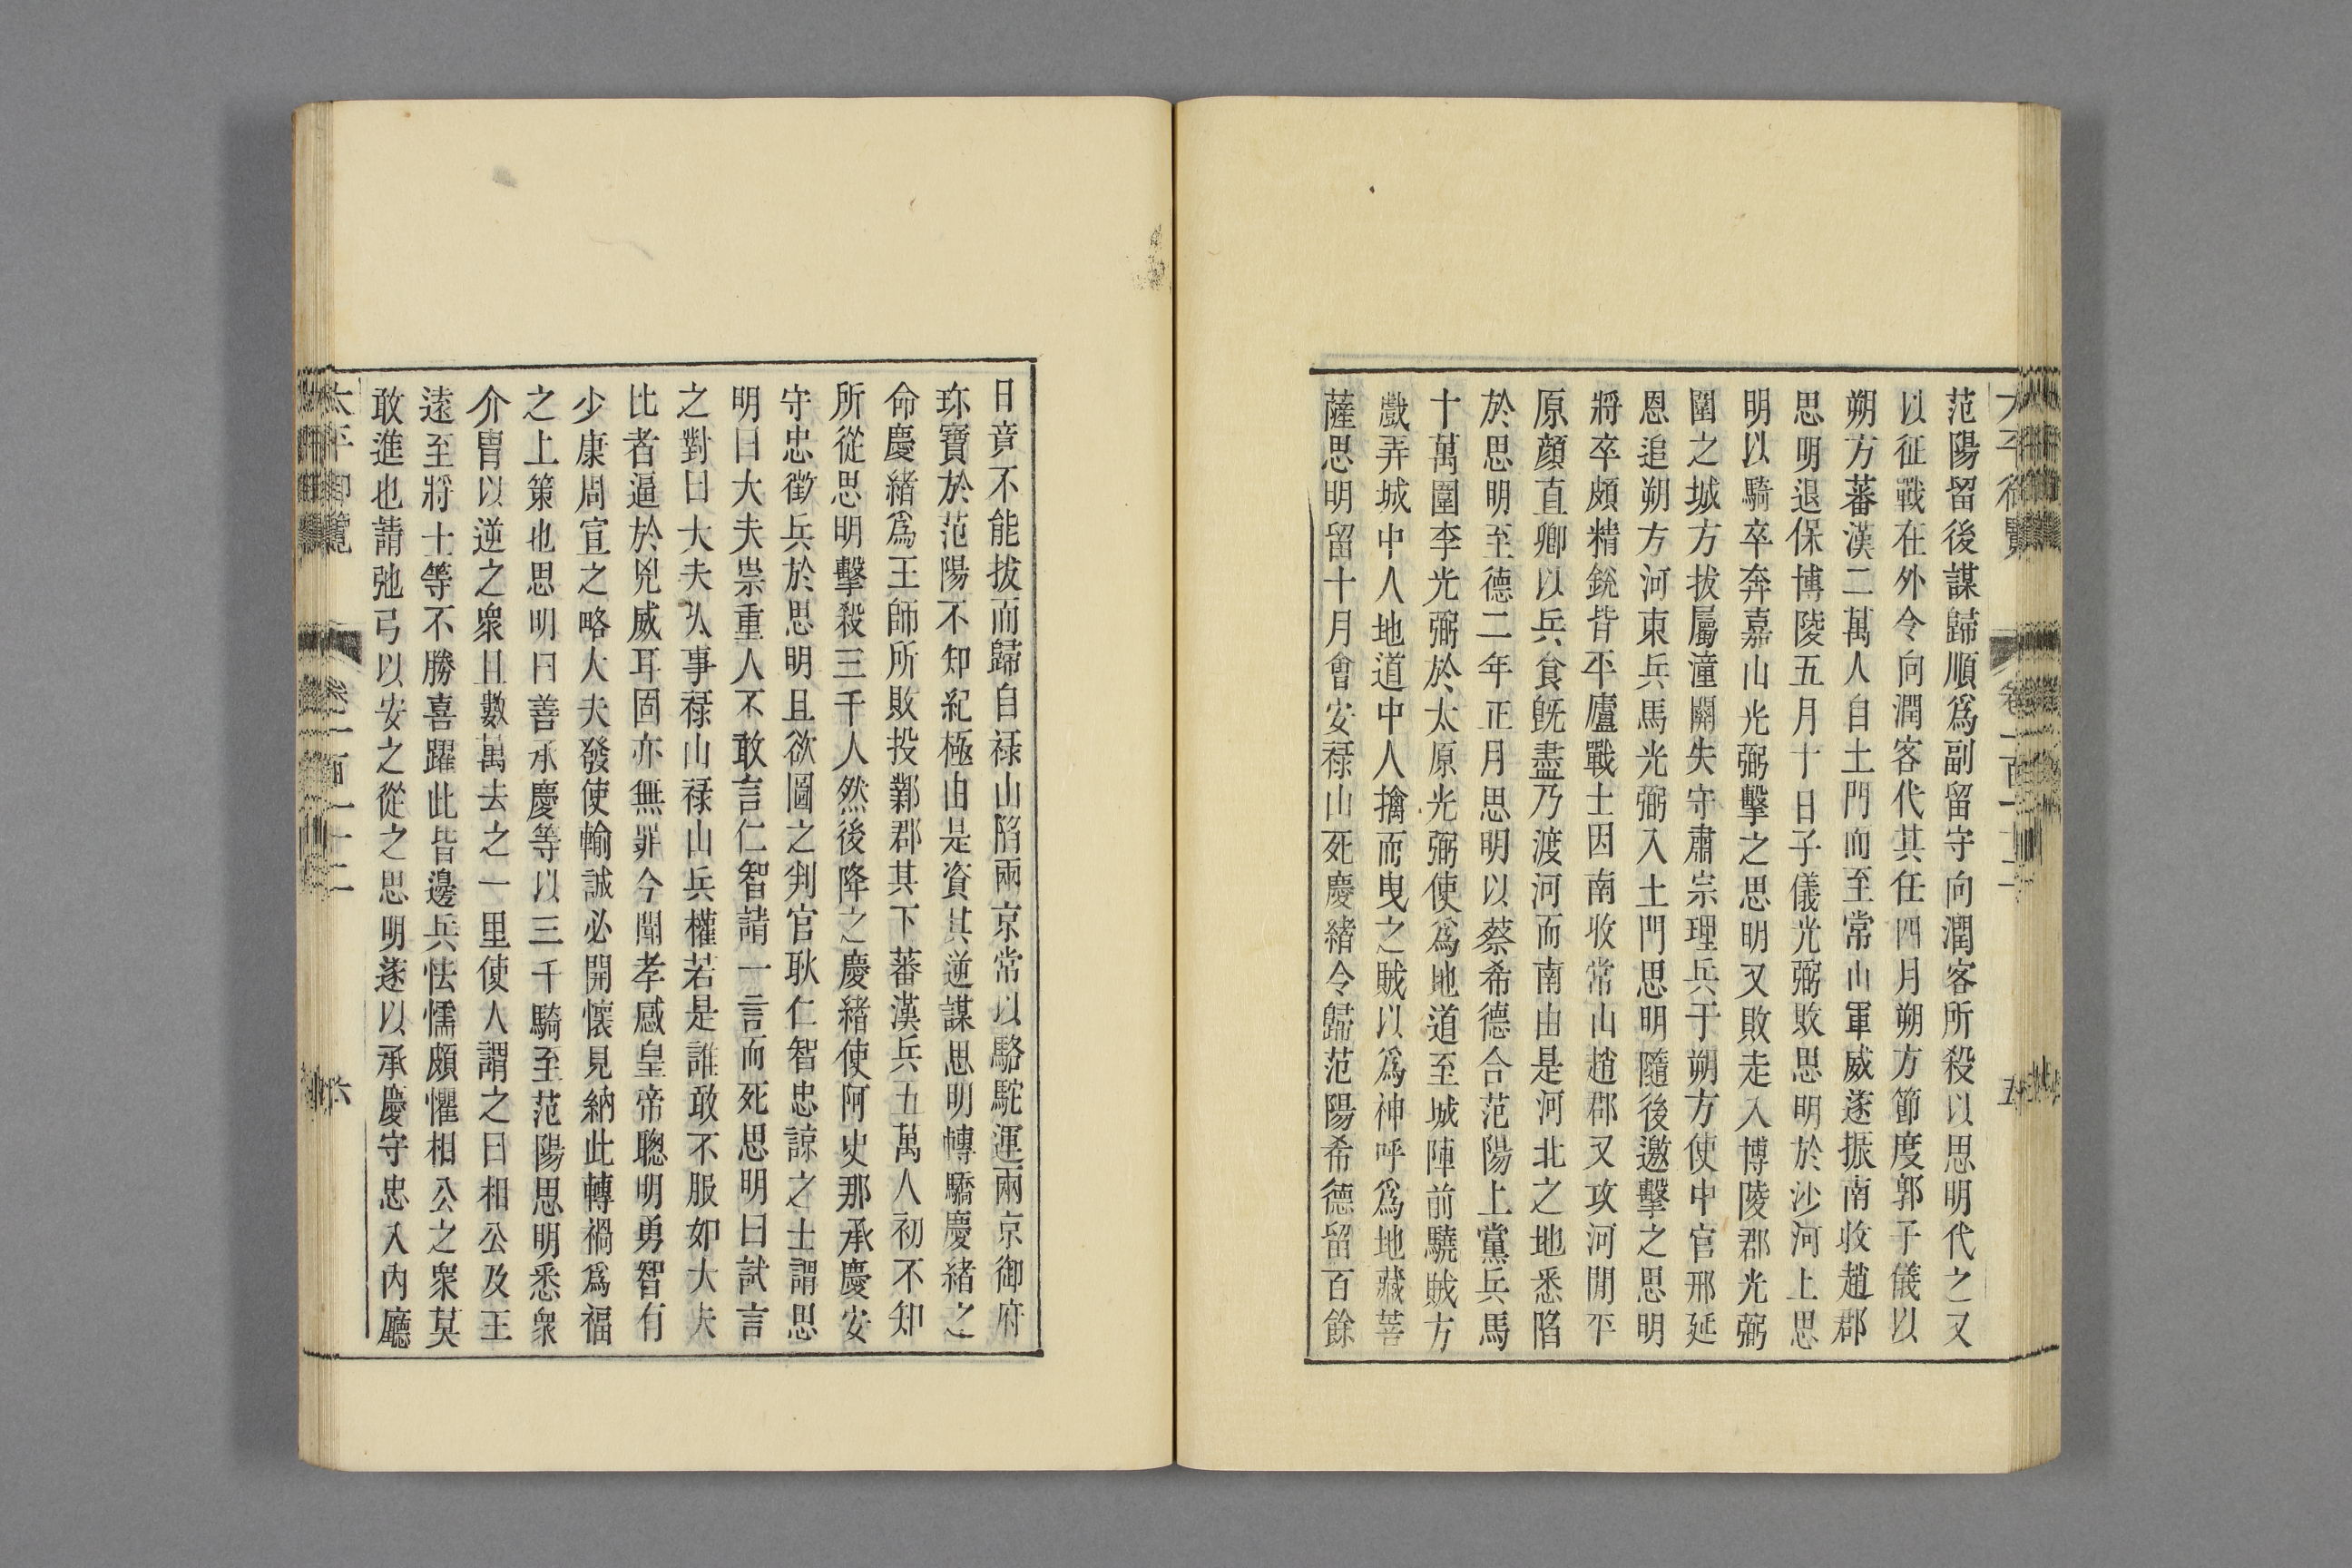 范陽留後謀歸順爲副留守向潤客所殺以思明代之又
以征戰在外令向潤客代其任四月朔方節度郭子儀以
朔方蕃漢二萬人自土門而至常山軍威遂振南收趙郡
思明退保博陵五月十日子儀光弼敗思明於沙河上思
明以騎卒奔嘉山光弼擊之思明又敗走入博陵郡光弼
圍之城方拔屬潼關失守肅宗理兵于朔方使中官邢延
恩追朔方河東兵馬光弼入土門思明隨後邀擊之思明
將卒頗精銳皆平盧戰士因南收常山趙郡又攻河閒平
原顔直卿以兵食既盡乃渡河而南由是河北之地悉陷
於思明至德二年正月思明以蔡希德合范陽上黨兵馬
十萬圍李光弼於太原光弼使爲地道至城陣前驍賊方
戲弄城中人地道中人擒而曳之賊以爲神呼爲地藏菩
薩思明留十月會安祿山死慶緒令歸范陽希德留百餘
日竟不能拔而歸自祿山陷兩京常以駱駝運兩京御府
珎寶於范陽不知紀極由是資其逆謀思明轉驕慶緒之
命慶緒爲王師所敗投鄴郡其下蕃漢兵五萬人初不知
所從思明擊殺三千人然後降之慶緒使阿史那承慶安
守忠徵兵於思明且欲圖之判官耿仁智忠諒之士謂思
明曰大夫崇重人不敢言仁智請一言而死思明曰試言
之對曰大夫久事祿山祿山兵權若是誰敢不服如大夫
比者逼於兇威耳固亦無罪今聞孝感皇帝聰明勇智有
少康周宣之略大夫發使輸誠必開懷見納此轉禍爲福
之上策也思明曰善承慶等以三千騎至范陽思明悉衆
介胄以逆之衆且數萬去之一里使人謂之曰相公及王
遠至將士等不勝喜躍此皆邊兵怯懦頗懼相公之衆莫
敢進也請弛弓以安之從之思明遂以承慶守忠入內廳
太平御覽 卷一百一十二 六